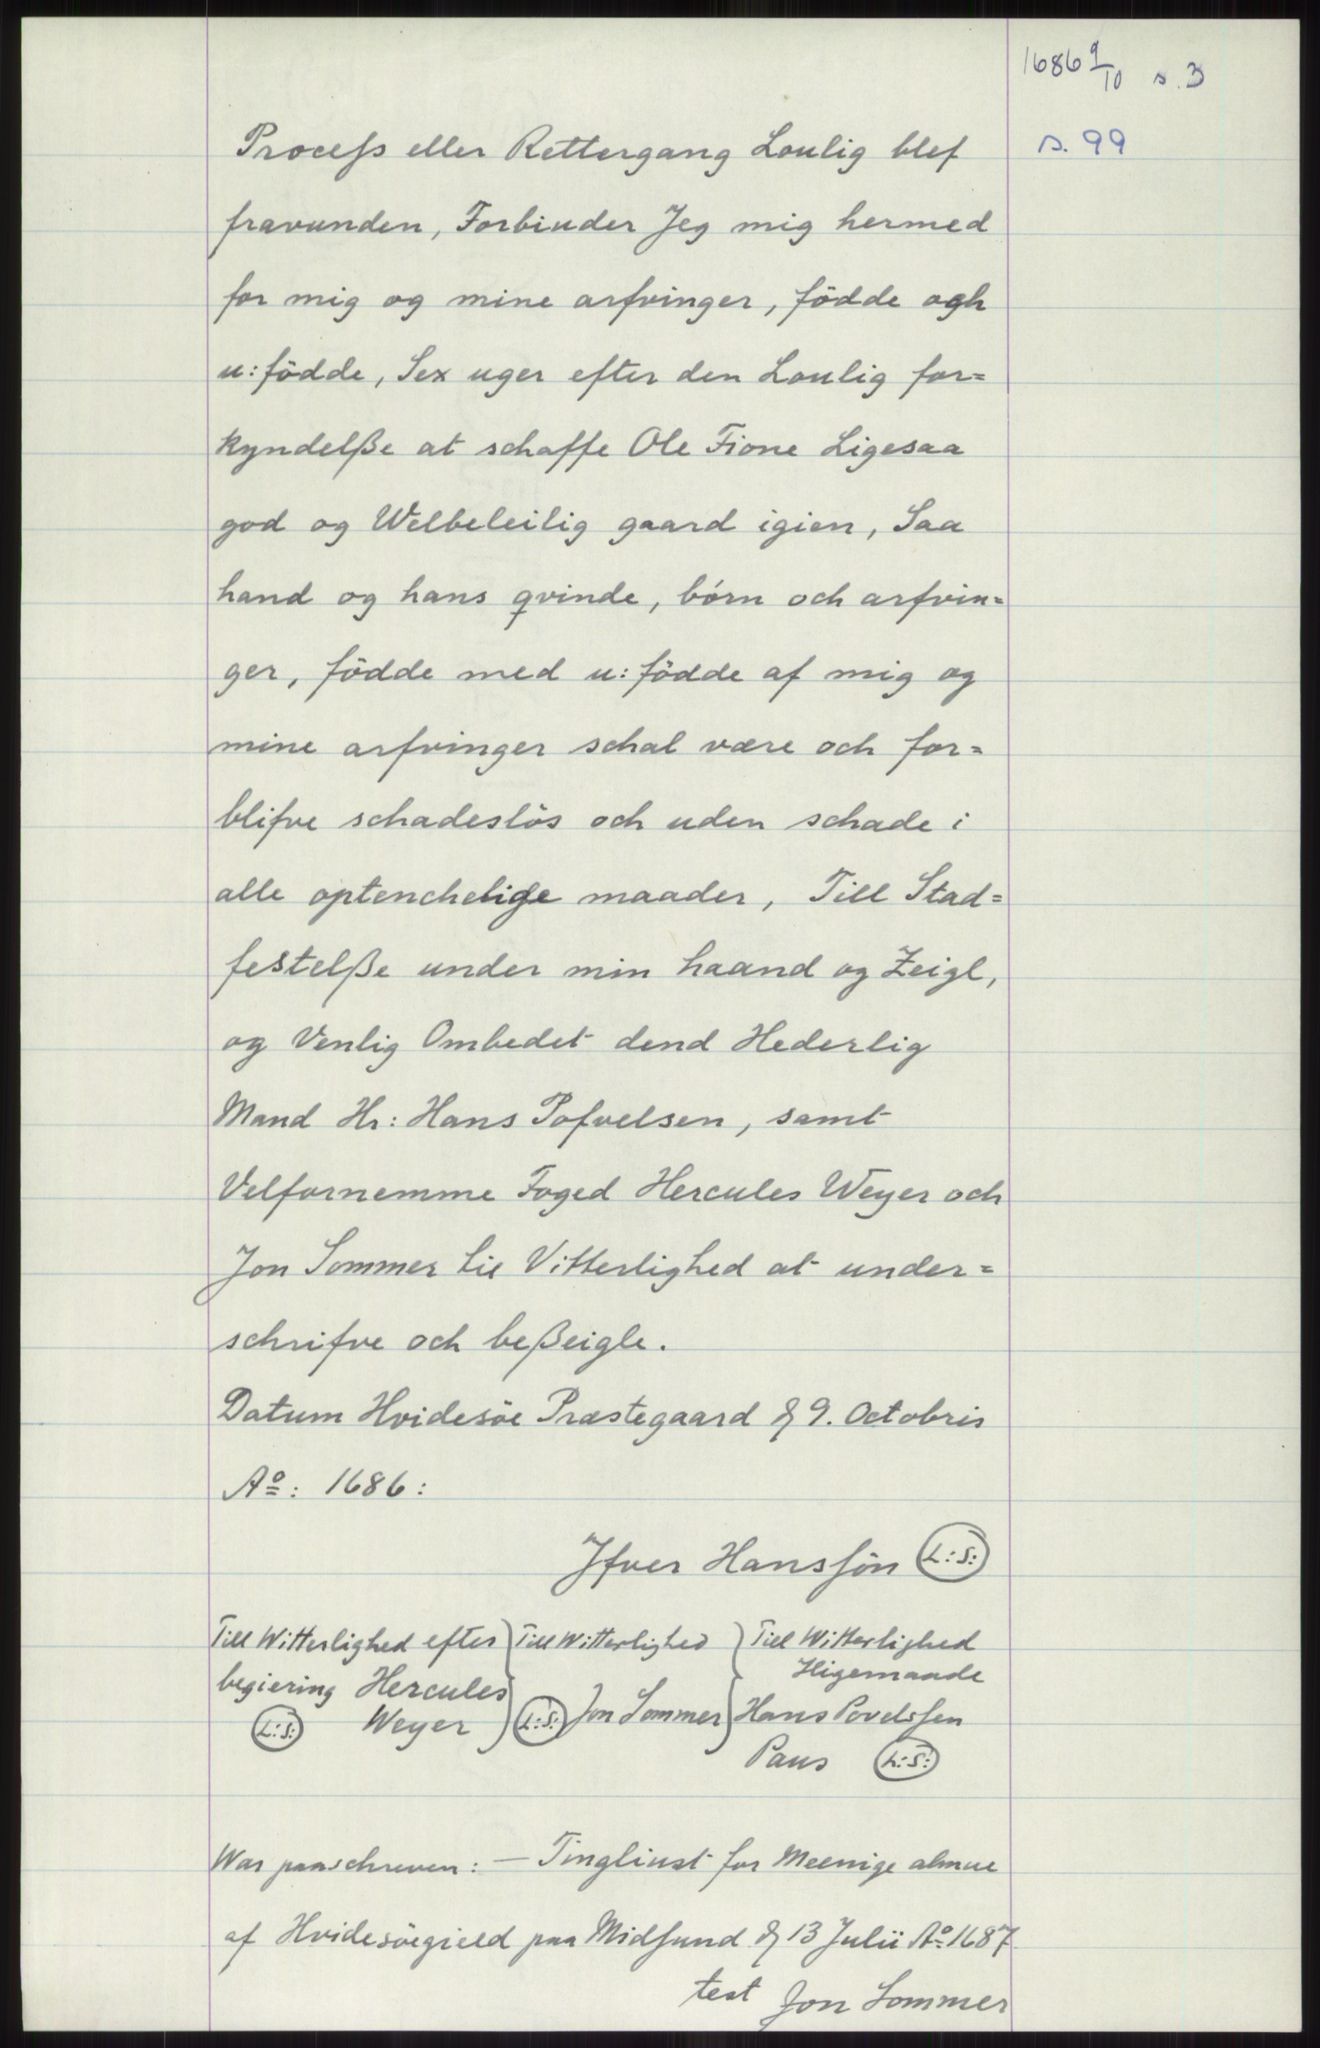 1686 9/10 s. 3
s. 99
Process eller Rettergang Loulig blef
fravunden, Forbinder Jeg mig hermed
for mig og mine arfvinger, födde ogh
u:födde, Sex uger efter den Loulig for=
kyndelße at schaffe Ole Fione Ligesaa
god og Welbeleilig gaard igien, Saa
hand og hans qvinde, börn och arfvin=
ger, födde med u:födde af mig og
mine arfvinger schal være och for=
blifve schadeslös och uden schade i
alle optenchelige maader, Till Stad=
festelße under min haand og Zeigl,
og Venlig Ombedet dend Hederlig
Mand Hr: Hans Pofvelsen, samt
Velfornemme Foged Hercules Weyer och
Jon Sommer til Vitterlighed at under=
schrifve och beßeigle.
Datum Hvidesöe Præstegaard d 9. Octobris
Aº: 1686:
Ifver Hanssön L:S:
Till Witterlighed efter
begiering Hercules
L:S: Weyer
Till Witterlighed
L:S: Jon Sommer
Till Witterlighed
Iligemaade
Hans Povelssen
Paus L:S:
War paaschreven: — Tingliust for Meenige almue
af Hvidesöegield paa Midsund d 13 Julii Aº 1687
test Jon Sommer